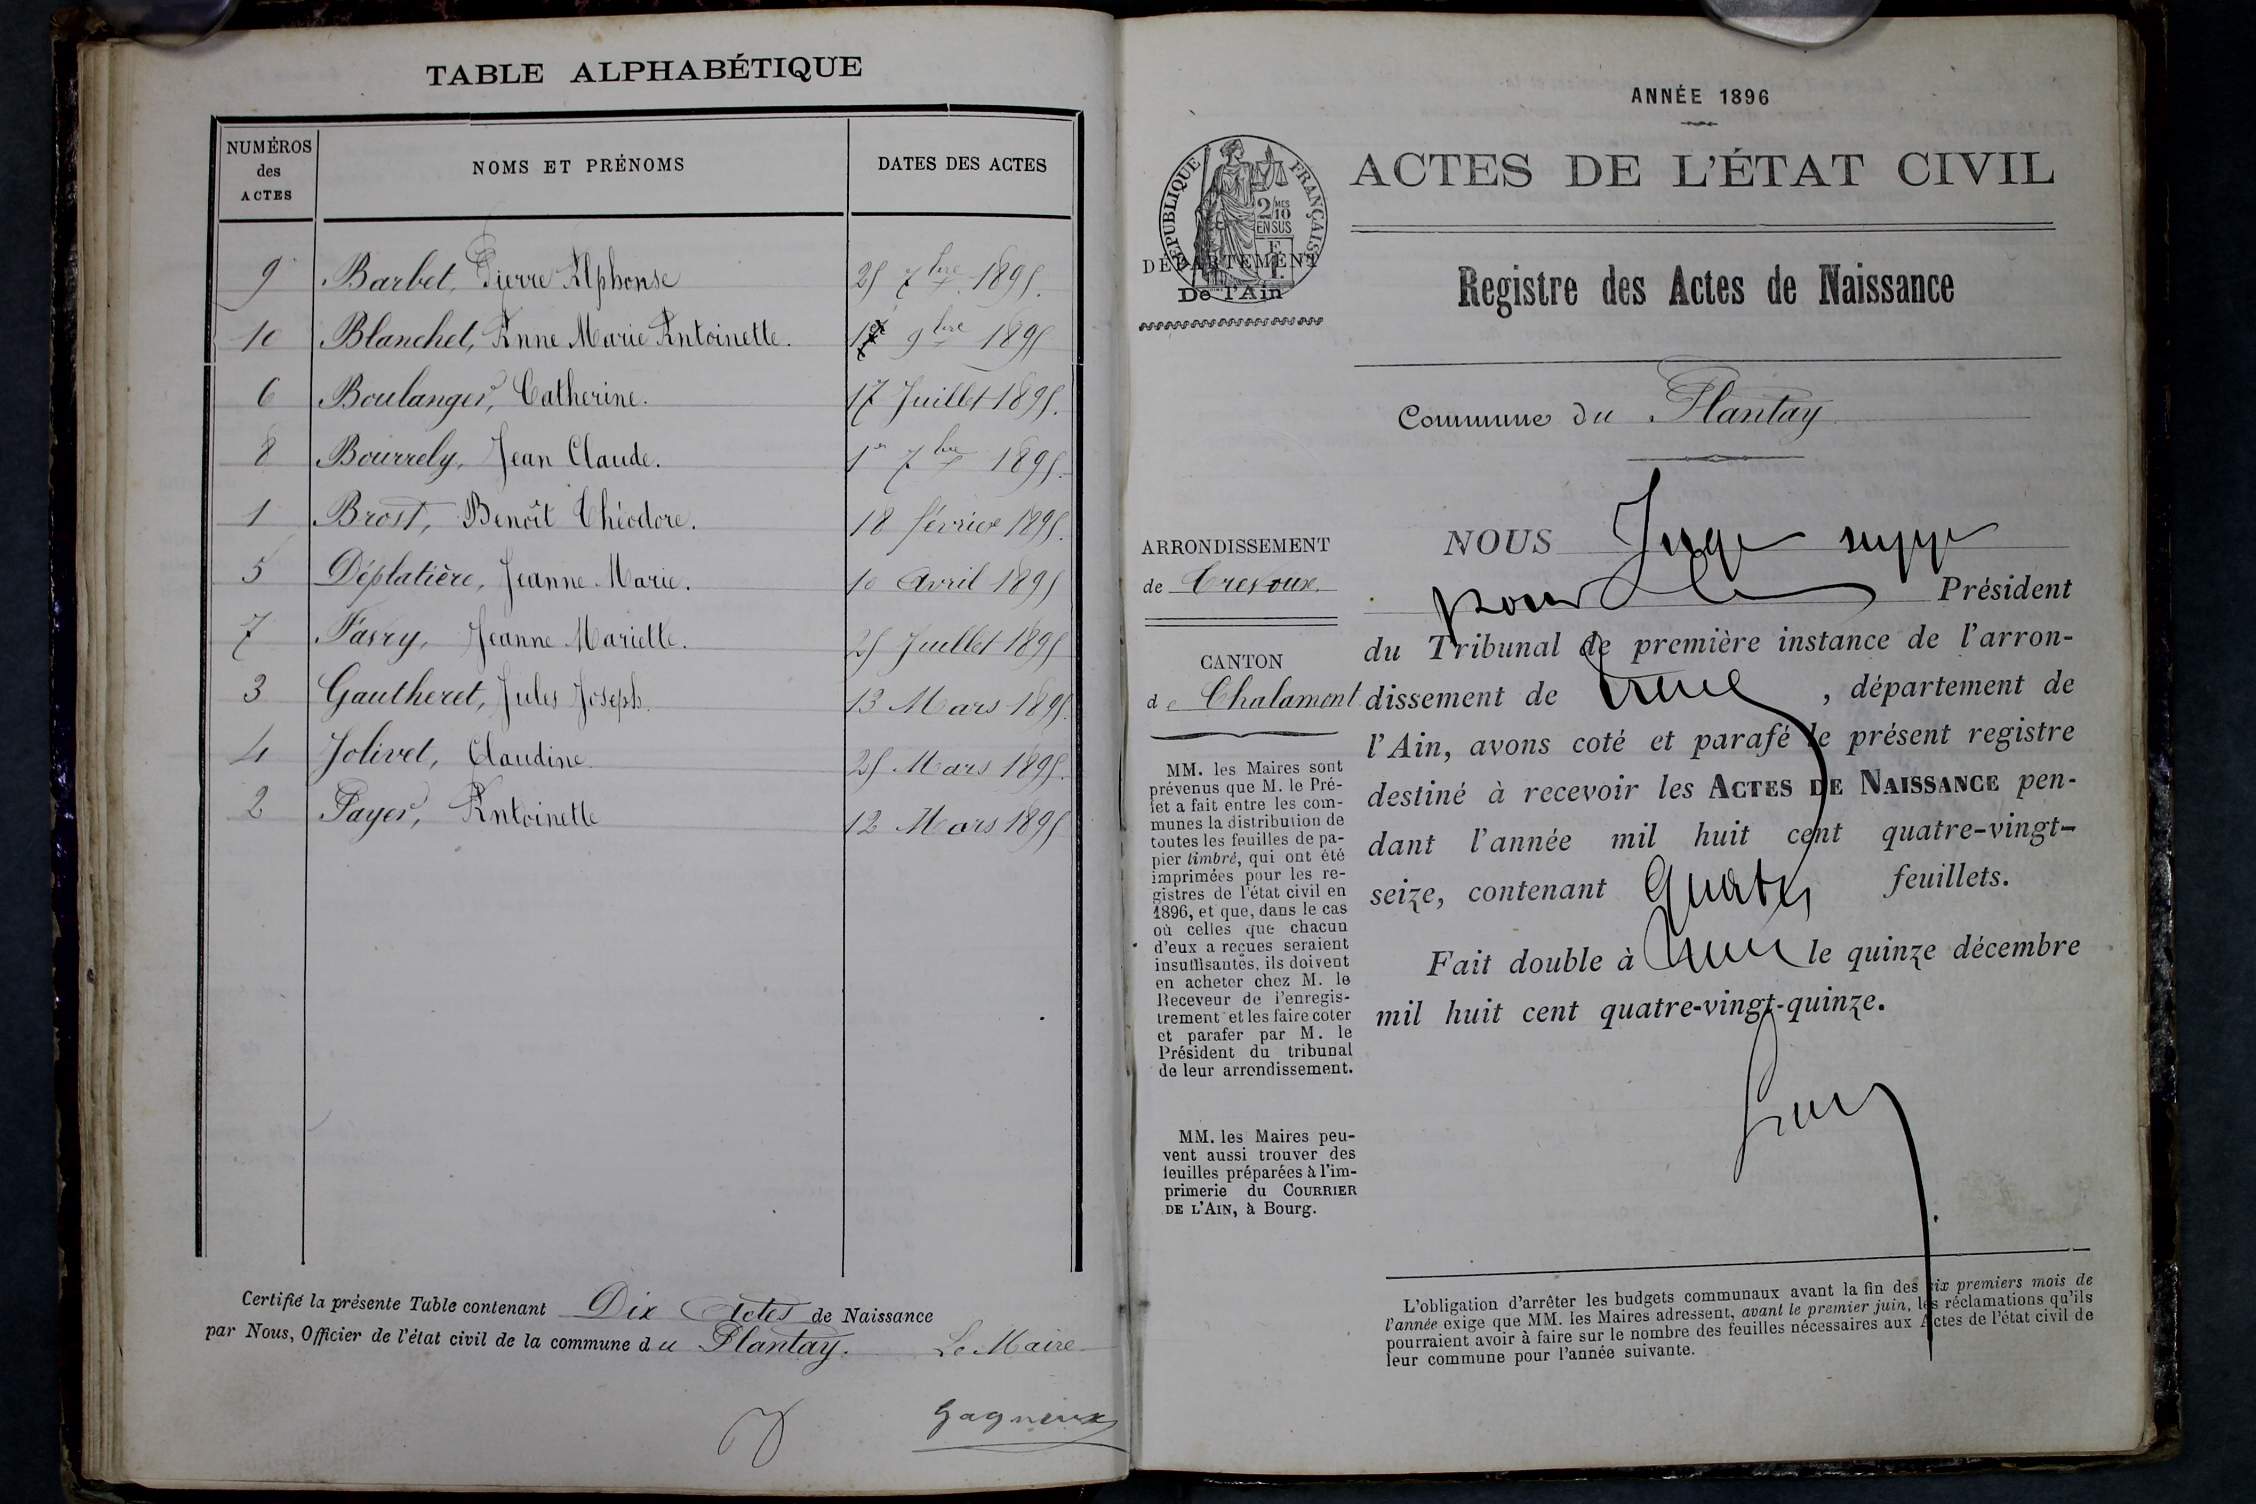 TABLE ALPHABÉTIQUE
NUMÉROS des ACTES
NOMS ET PRÉNOMS
DATES DES ACTES
9 Barbet, Pierre Alphonse 25 7bre 1895.
10 Blanchet, Anne Marie Antoinette. 1er 9bre 1895
6 Boulanger, Catherine. 17 Juillet 1895.
8 Bourrely, Jean Claude. 1er 7bre 1895.
1 Brost, Benoît Théodore. 18 février 1895.
5 Déplatière, Jeanne Marie. 10 Avril 1895
7 Favry, Jeanne Mariette. 25 Juillet 1895
3 Gautheret, Jules Joseph. 13 Mars 1895.
4 Jolivet, Claudine. 25 Mars 1895.
2 Payer, Antoinette 12 Mars 1895
Certifié la présente Table contenant Dix Actes de Naissance
par Nous, Officier de l'état civil de la commune du Plantay. Le Maire
Gagneux
ANNÉE 1896
RÉPUBLIQUE FRANÇAISE
2/10 MES
EN SUS
ACTES DE L'ÉTAT CIVIL
DÉPARTEMENT
De l'Ain
Registre des Actes de Naissance
Commune du Plantay
ARRONDISSEMENT
de Trevoux.
CANTON
de Chalamont
MM. les Maires sont
prévenus que M. le Pré-
fet a fait entre les com-
munes la distribution de
toutes les feuilles de pa-
pier timbré, qui ont été
imprimées pour les re-
gistres de l'état civil en
1896, et que, dans le cas
où celles que chacun
d'eux a reçues seraient
insuffisantes, ils doivent
en acheter chez M. le
Receveur de l'enregis-
trement et les faire coter
et parafer par M. le
Président du tribunal
de leur arrondissement.
MM. les Maires peu-
vent aussi trouver des
feuilles préparées à l'im-
primerie du COURRIER
DE L'AIN, à Bourg.
NOUS Juge supp
pour le Président
du Tribunal de première instance de l'arron-
dissement de , département de
l'Ain, avons coté et parafé le présent registre
destiné à recevoir les ACTES DE NAISSANCE pen-
dant l'année mil huit cent quatre-vingt-
seize, contenant quatre feuillets.
Fait double à le quinze décembre
mil huit cent quatre-vingt-quinze.
L'obligation d'arrêter les budgets communaux avant la fin des six premiers mois de
l'année exige que MM. les Maires adressent, avant le premier juin, les réclamations qu'ils
pourraient avoir à faire sur le nombre des feuilles nécessaires aux Actes de l'état civil de
leur commune pour l'année suivante.